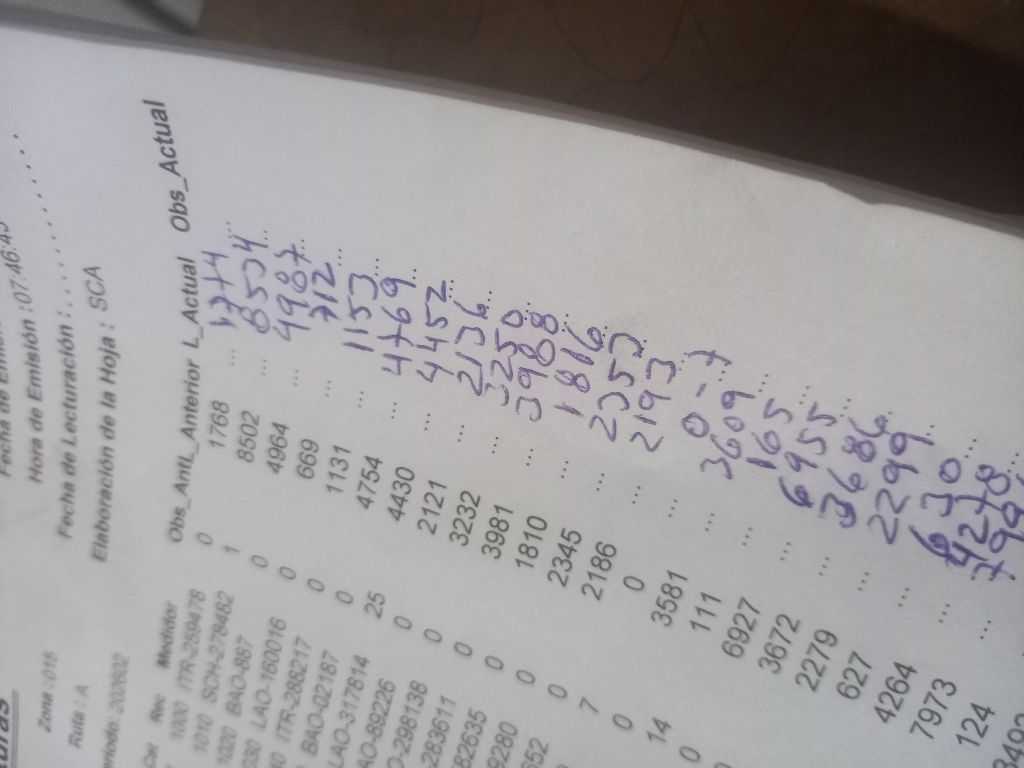 Zona : 015
Hora de Emisión : 07:46:45
Ruta : A
Fecha de Lecturación : . . . . . . . . . . . . . .
Elaboración de la Hoja : SCA
Rec Medidor Obs_Ant L_Anterior L_Actual Obs_Actual
1000 ITR-259478 0 1768 ... 1774 ...
1010 SCH-278482 1 8502 ... 8534 ...
1020 BAO-887 0 4964 ... 4987 ...
030 LAO-160016 0 669 ... 712 ...
ITR-288217 0 1131 ... 1153 ...
BAO-02187 0 4754 ... 4769 ...
LAO-317814 25 4430 ... 4452 ...
AO-89226 0 2121 ... 2136 ...
O-298138 0 3232 ... 3250 ...
283611 0 3981 ... 3988 ...
82635 0 1810 ... 1816 ...
9280 0 2345 ... 2353 ...
652 0 2186 ... 2193 ...
7 0 ... 0 - 7
0 3581 ... 3609 ...
14 111 ... 165 ...
0 6927 ... 6955 ...
3672 ... 3686 ...
2279 ... 2299 ...
627 ... 630 ...
4264 ... 4278
7973 ...
124